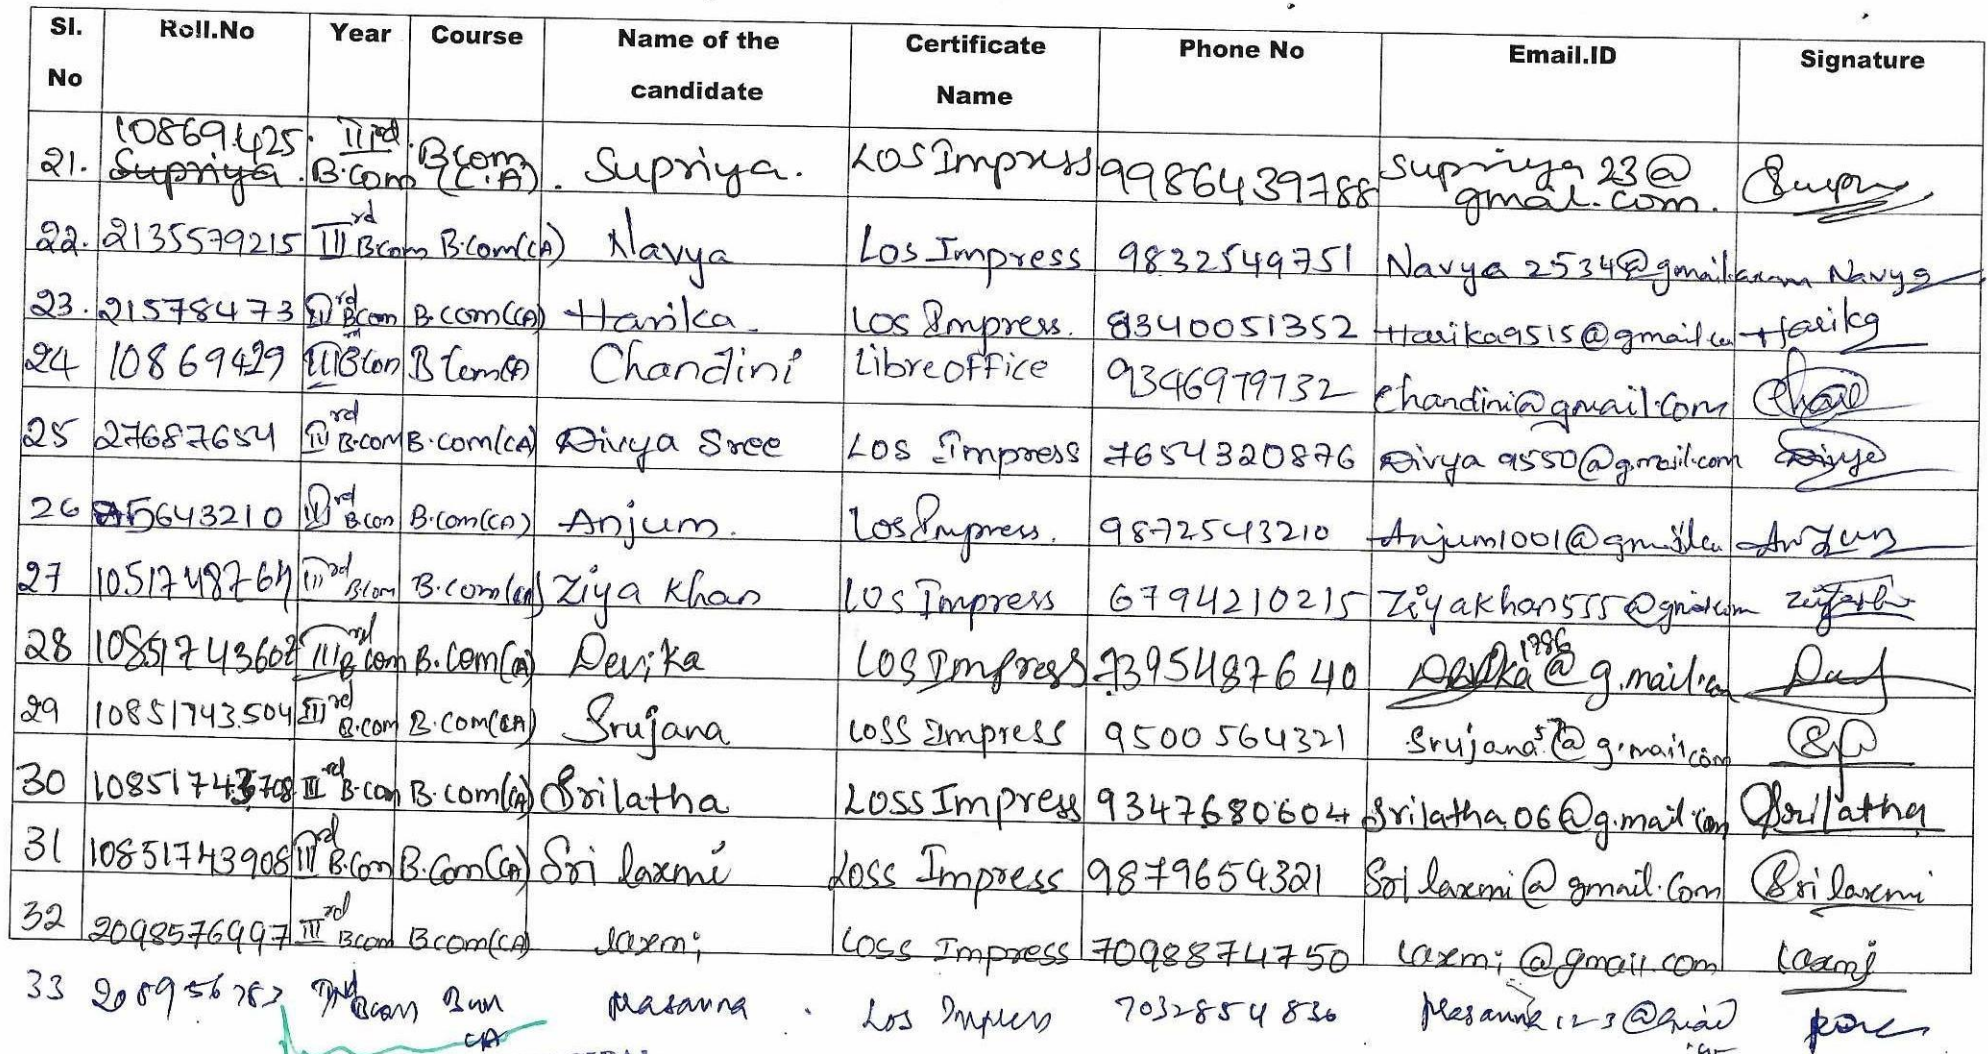 Sl. No Roll.No Year Course Name of the candidate Certificate Name Phone No Email.ID Signature
21. 10869425. Supriya. IIIrd B.Com B.com (C.A). Supriya. LOS Impress 9986439788 Supriya 23@gmal.com. Supr
22. 2135579215 IIIrd Bcom B.Com(CA) Navya Los Impress 9832549751 Navya 2534@gmail. Navya
23. 21578473 IIIrd Bcom B.com(CA) Harika. Los Impress. 8340051352 Harika9515@gmail.co Harika
24 10869429 III B.Con B Com(A) Chandini Libreoffice 9346979732 Chandini@gmail.com
25 27687654 IIIrd B.com B.com(CA) Divya Sree Los Impress 7654320876 Divya 9550@g.mail.com Divya
26 5643210 IIIrd B.con B.com(CA) Anjum. Los Impress. 9872543210 Anjum1001@gmail.co Anjum
27 1051748764 IIIrd B.com B.com(CA) Ziya Khan Los Impress 6794210215 Ziyakhan555@gmail.com
28 10851743607 IIIrd B.com B.com(CA) Devika LOS Impress 7395487640 Devika1786@g.mail.com
29 10851743504 IIIrd B.com B.com(CA) Srujana LOSS Impress 9500564321 Srujana57@g.mail.com
30 10851743708 IIIrd B.com B.com(CA) Srilatha LOSS Impress 9347680604 Srilatha06@g.mail.com Srilatha
31 10851743908 IIIrd B.Com B.Com(CA) Sri laxmi Loss Impress 9879654321 Sri laxmi@gmail.com Sri laxmi
32 2098576997 IIIrd Bcom Bcom(CA) laxmi Loss Impress 70988 74750 laxmi@gmail.com laxmi
33 208956783 Bcom CA Masanna. Los Impress 7032854836